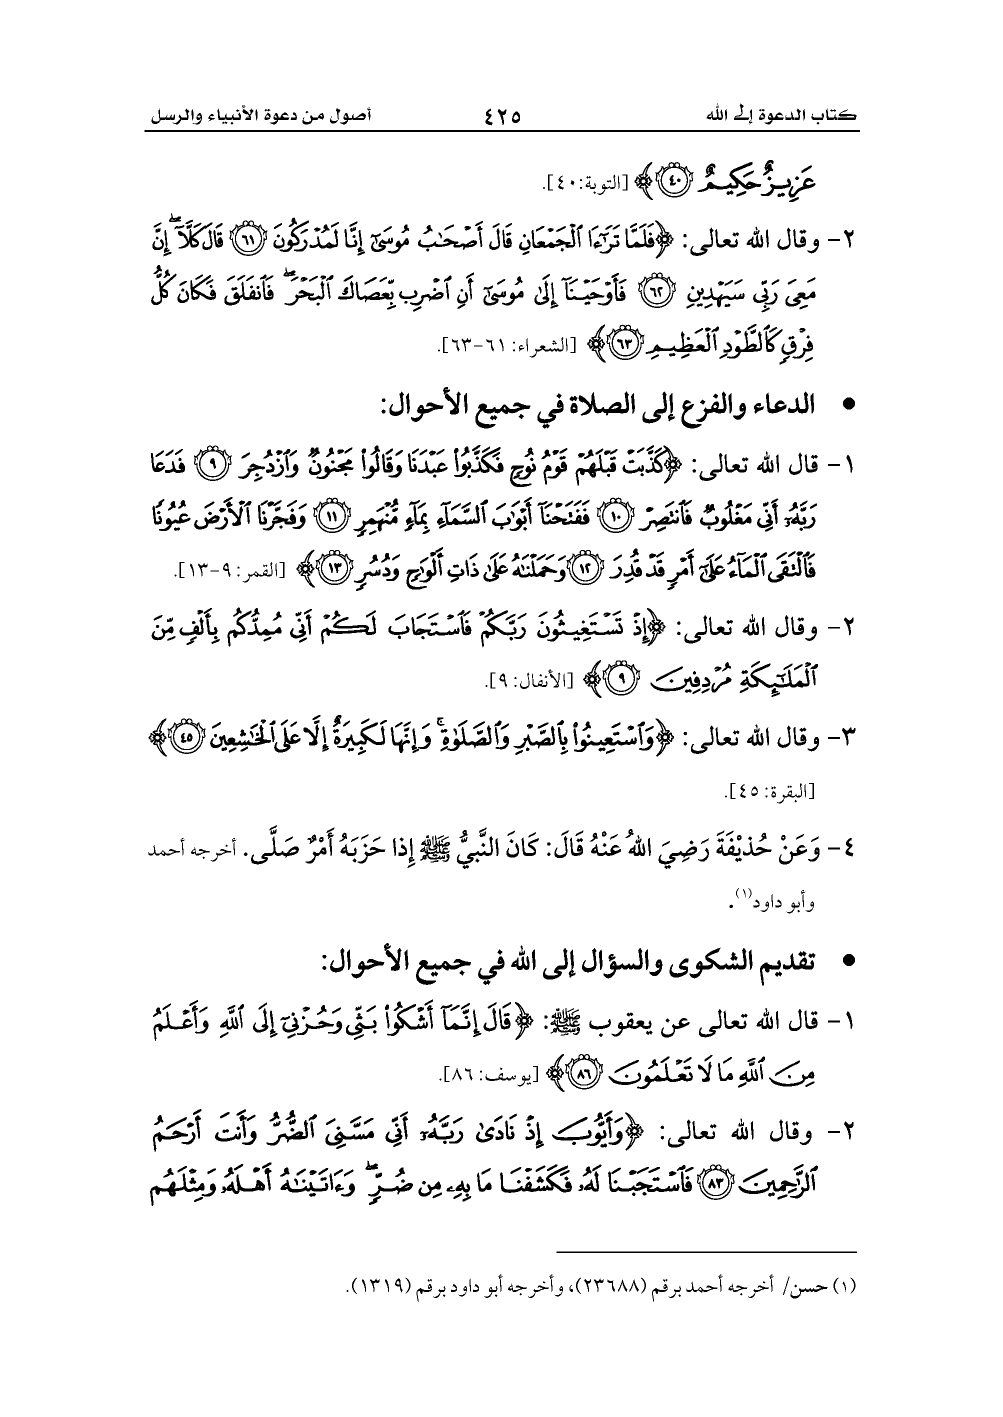 كتاب الدعوة إلى الله ٤٢٥ أصول من دعوة الأنبياء والرسل
عَزِيزٌ حَكِيمٌ ﴿٤٠﴾ [التوبة:٤٠].
٢- وقال الله تعالى: ﴿فَلَمَّا تَرَٰٓءَا ٱلْجَمْعَانِ قَالَ أَصْحَٰبُ مُوسَىٰٓ إِنَّا لَمُدْرَكُونَ ﴿٦١﴾ قَالَ كَلَّآ ۖ إِنَّ
مَعِىَ رَبِّى سَيَهْدِينِ ﴿٦٢﴾ فَأَوْحَيْنَآ إِلَىٰ مُوسَىٰٓ أَنِ ٱضْرِب بِّعَصَاكَ ٱلْبَحْرَ ۖ فَٱنفَلَقَ فَكَانَ كُلُّ
فِرْقٍ كَٱلطَّوْدِ ٱلْعَظِيمِ ﴿٦٣﴾﴾ [الشعراء: ٦١-٦٣].
• الدعاء والفزع إلى الصلاة في جميع الأحوال:
١- قال الله تعالى: ﴿كَذَّبَتْ قَبْلَهُمْ قَوْمُ نُوحٍ فَكَذَّبُوا۟ عَبْدَنَا وَقَالُوا۟ مَجْنُونٌ وَٱزْدُجِرَ ﴿٩﴾ فَدَعَا
رَبَّهُۥٓ أَنِّى مَغْلُوبٌ فَٱنتَصِرْ ﴿١٠﴾ فَفَتَحْنَآ أَبْوَٰبَ ٱلسَّمَآءِ بِمَآءٍ مُّنْهَمِرٍ ﴿١١﴾ وَفَجَّرْنَا ٱلْأَرْضَ عُيُونًا
فَٱلْتَقَى ٱلْمَآءُ عَلَىٰٓ أَمْرٍ قَدْ قُدِرَ ﴿١٢﴾ وَحَمَلْنَٰهُ عَلَىٰ ذَاتِ أَلْوَٰحٍ وَدُسُرٍ ﴿١٣﴾﴾ [القمر: ٩-١٣].
٢- وقال الله تعالى: ﴿إِذْ تَسْتَغِيثُونَ رَبَّكُمْ فَٱسْتَجَابَ لَكُمْ أَنِّى مُمِدُّكُم بِأَلْفٍ مِّنَ
ٱلْمَلَٰٓئِكَةِ مُرْدِفِينَ ﴿٩﴾﴾ [الأنفال: ٩].
٣- وقال الله تعالى: ﴿وَٱسْتَعِينُوا۟ بِٱلصَّبْرِ وَٱلصَّلَوٰةِ ۚ وَإِنَّهَا لَكَبِيرَةٌ إِلَّا عَلَى ٱلْخَٰشِعِينَ ﴿٤٥﴾﴾
[البقرة: ٤٥].
٤- وَعَنْ حُذَيْفَةَ رَضِيَ اللهُ عَنْهُ قَالَ: كَانَ النَّبِيُّ ﷺ إِذا حَزَبَهُ أَمْرٌ صَلَّى. أخرجه أحمد
وأبو داود(١).
• تقديم الشكوى والسؤال إلى الله في جميع الأحوال:
١- قال الله تعالى عن يعقوب ﷺ: ﴿قَالَ إِنَّمَآ أَشْكُوا۟ بَثِّى وَحُزْنِىٓ إِلَى ٱللَّهِ وَأَعْلَمُ
مِنَ ٱللَّهِ مَا لَا تَعْلَمُونَ ﴿٨٦﴾﴾ [يوسف: ٨٦].
٢- وقال الله تعالى: ﴿وَأَيُّوبَ إِذْ نَادَىٰ رَبَّهُۥٓ أَنِّى مَسَّنِىَ ٱلضُّرُّ وَأَنتَ أَرْحَمُ
ٱلرَّٰحِمِينَ ﴿٨٣﴾ فَٱسْتَجَبْنَا لَهُۥ فَكَشَفْنَا مَا بِهِۦ مِن ضُرٍّ ۖ وَءَاتَيْنَٰهُ أَهْلَهُۥ وَمِثْلَهُم
(١) حسن/ أخرجه أحمد برقم (٢٣٦٨٨)، وأخرجه أبو داود برقم (١٣١٩).